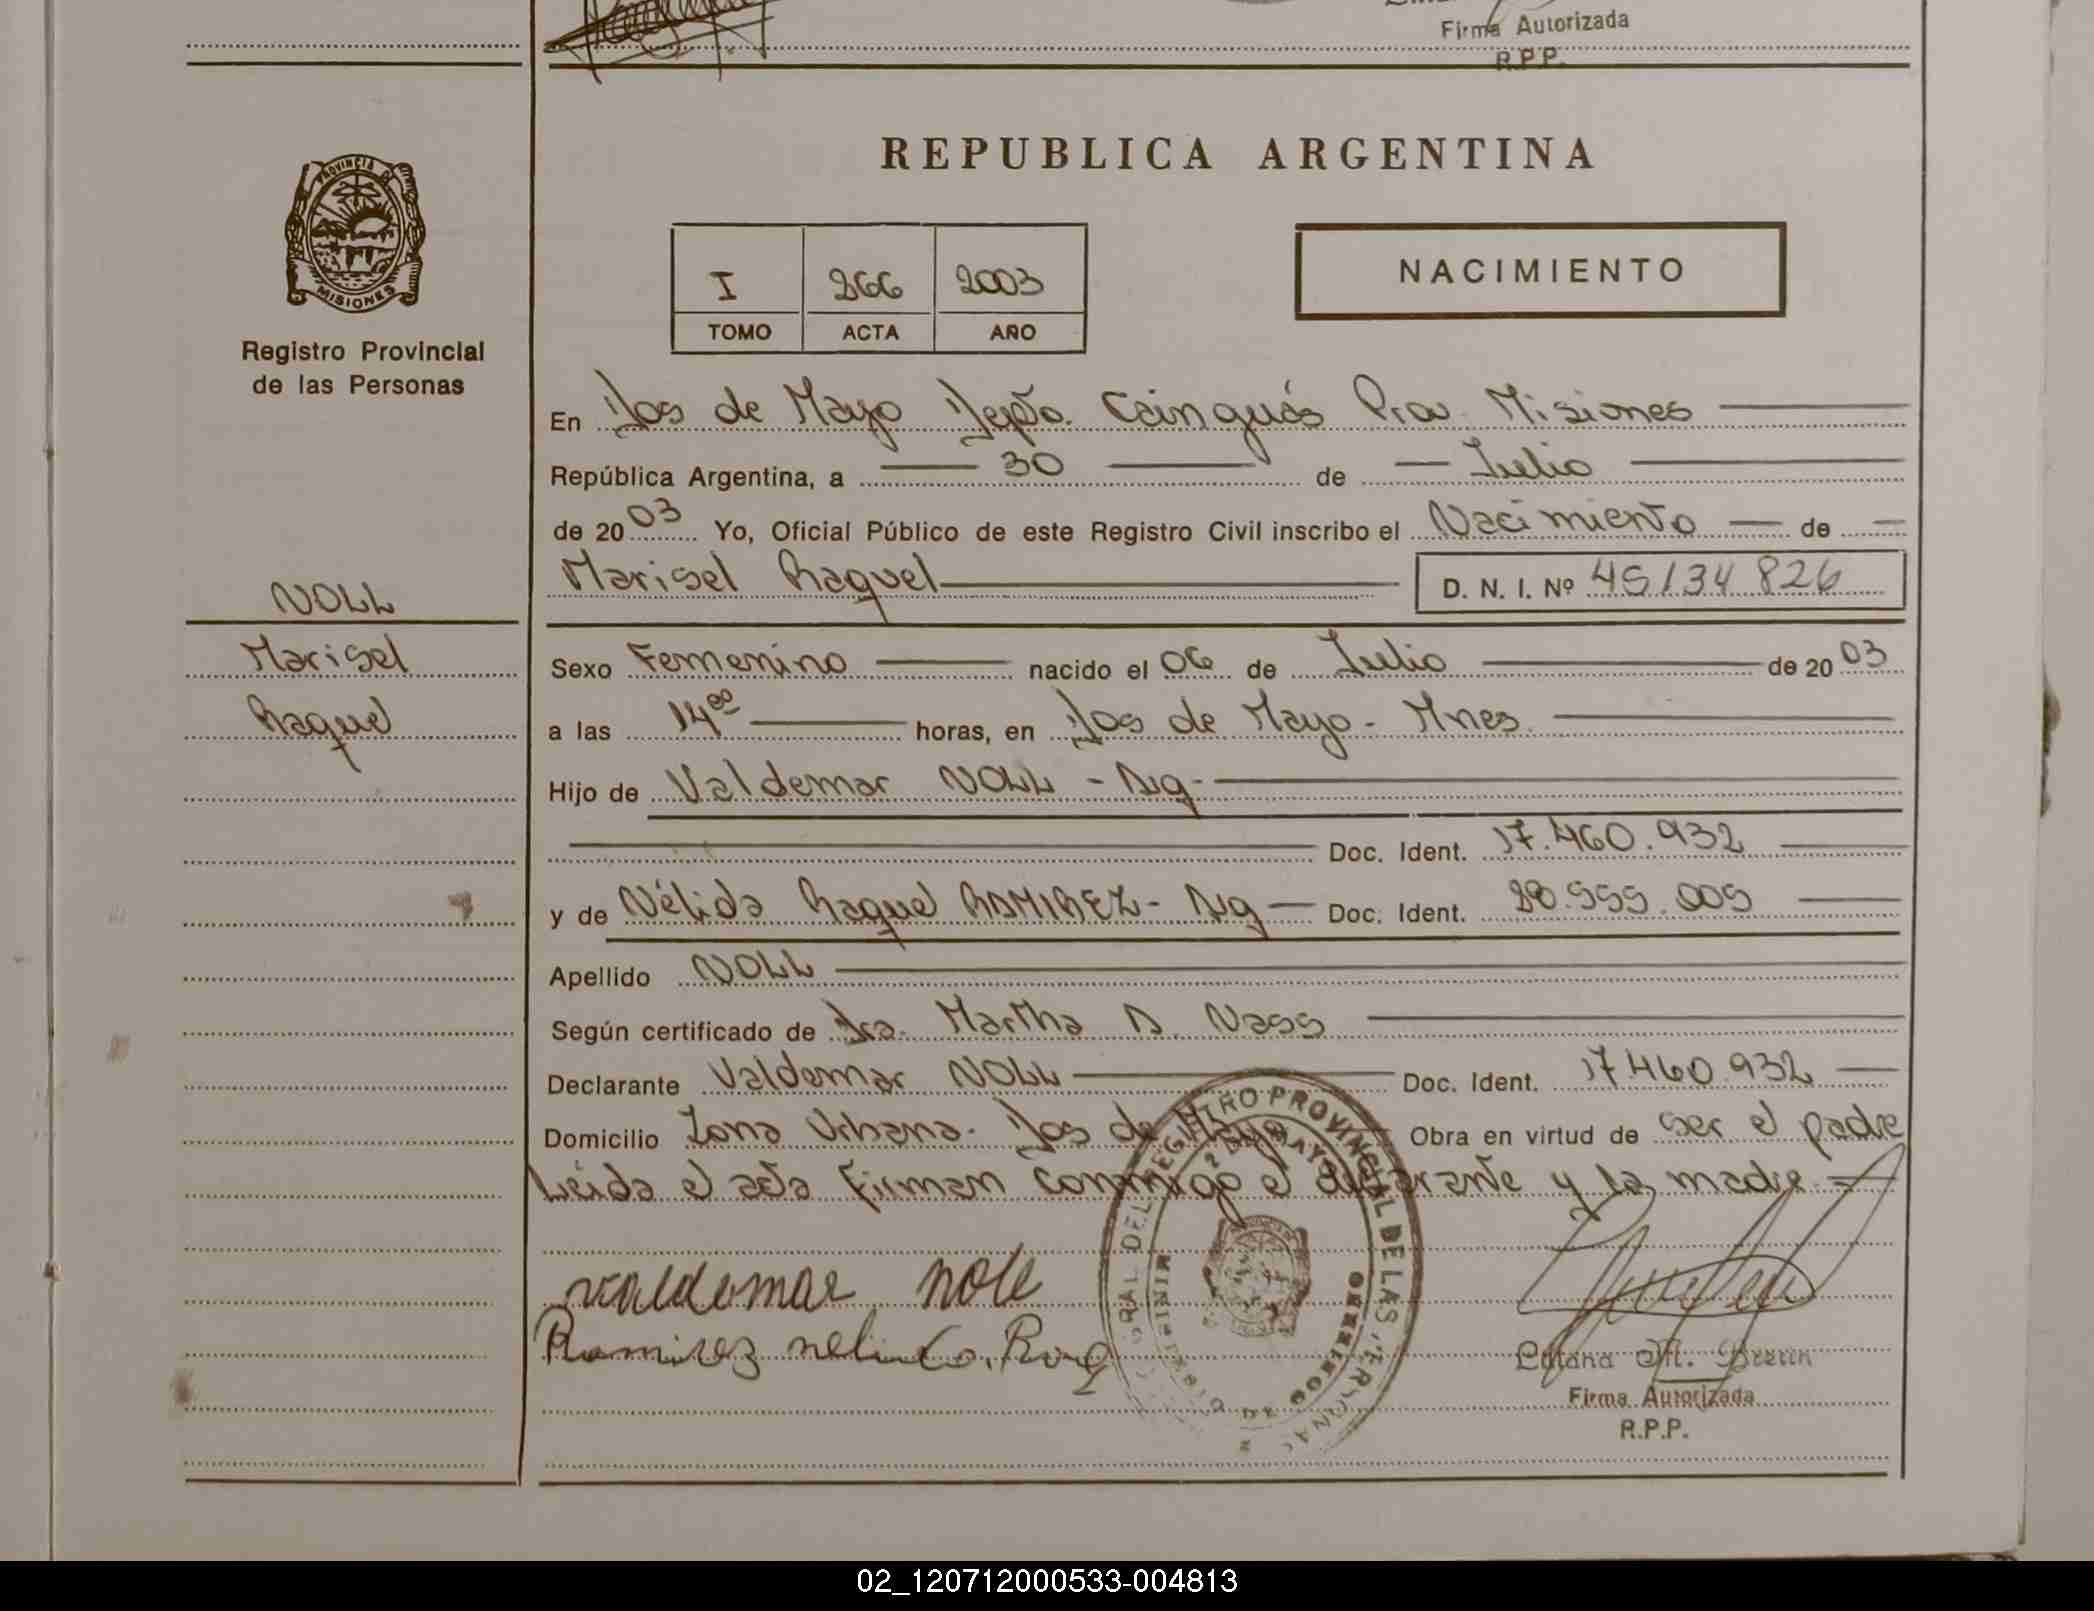 Firma Autorizada
R.P.P.
PROVINCIA DE
MISIONES
Registro Provincial
de las Personas
REPUBLICA ARGENTINA
I 266 2003
TOMO ACTA AÑO
NACIMIENTO
En Dos de Mayo Depto. Cainguás Prov. Misiones
República Argentina, a 30 de Julio
de 2003 Yo, Oficial Público de este Registro Civil inscribo el Nacimiento de
Marisel Raquel D. N. I. Nº 45134826
NOLL
Marisel
Raquel
Sexo Femenino nacido el 06 de Julio de 2003
a las 14⁰⁰ horas, en Dos de Mayo - Mnes.
Hijo de Valdemar NOLL - Arg -
Doc. Ident. 17.460.932
y de Nélida Raquel RAMIREZ - Arg Doc. Ident. 28.555.005
Apellido NOLL
Según certificado de Dra. Martha A. Nass
Declarante Valdemar NOLL Doc. Ident. 17.460.932
Domicilio Zona Urbana - Dos de Mayo Obra en virtud de ser el padre
Leída el acta firman conmigo el declarante y la madre
Valdemar Noll
Ramirez Nelida. Raq
REGISTRO PROVINCIAL DE LAS PERSONAS
Firma Autorizada
R.P.P.
02_120712000533-004813